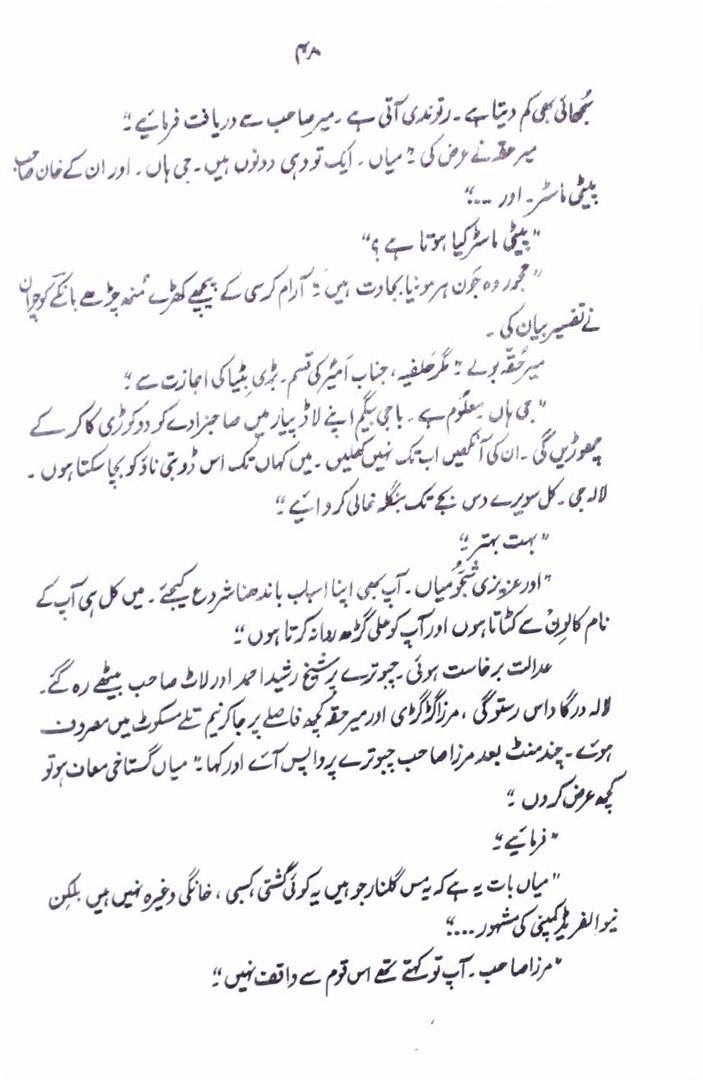 ۴۸
سُجھائی بھی کم دیتا ہے۔ رتوندی آتی ہے۔ میر صاحب سے دریافت فرمائیے۔"
میر حقہ نے عرض کی۔ "میاں۔ ایک تو وہی دونوں ہیں۔ جی ہاں۔ اور ان کے خان صاحب
پیٹی ماسٹر۔ اور ...."
"پیٹی ماسٹر کیا ہوتا ہے؟"
"حجور وہ جَون ہرمونیا بجاوت ہیں۔" آرام کرسی کے پیچھے کھڑے مُنھ چڑھے بانکے
نے تفسیر بیان کی۔
میر حُقّہ بولے۔ "مگر حَلفیہ، جناب امیرؑ کی قسم۔ بڑی بِٹیا کی اجازت سے۔"
"جی ہاں معلُوم ہے۔ باجی بیگم اپنے لاڈ پیار میں صاحبزادے کو دو کوڑی کا کر کے
چھوڑیں گی۔ ان کی آنکھیں اب تک نہیں کھلیں۔ میں کہاں تک اس ڈوبتی ناؤ کو بچا سکتا ہوں۔
لالہ جی۔ کل سویرے دس بجے تک بنگلہ خالی کروائیے۔"
"بہت بہتر۔"
"اور عزیزی شجّو میاں۔ آپ بھی اپنا اسباب باندھنا شروع کیجئے۔ میں کل ہی آپ کے
نام کالونْ سے کٹاتا ہوں اور آپ کو علی گڑھ روانہ کرتا ہوں۔"
عدالت برخاست ہوئی۔ چبوترے پر شیخ رشید احمد اور لاٹ صاحب بیٹھے رہ گئے۔
لالہ درگا داس رستوگی، مرزا گڑگڑی اور میر حقہ کچھ فاصلے پر جا کر نیم تلے مسکوٹ میں مصروف
ہوئے۔ چند منٹ بعد مرزا صاحب چبوترے پر واپس آئے اور کہا۔ "میاں گستاخی معاف ہو تو
کچھ عرض کروں۔"
"فرمائیے۔"
"میاں بات یہ ہے کہ یہ مس گلنار جو ہیں یہ کوئی گشتی، کسبی، خانگی وغیرہ نہیں ہیں بلکِن
نیو الفریڈ کمپنی کی مشہور ...."
"مرزا صاحب۔ آپ تو کہتے تھے اس قوم سے واقف نہیں۔"